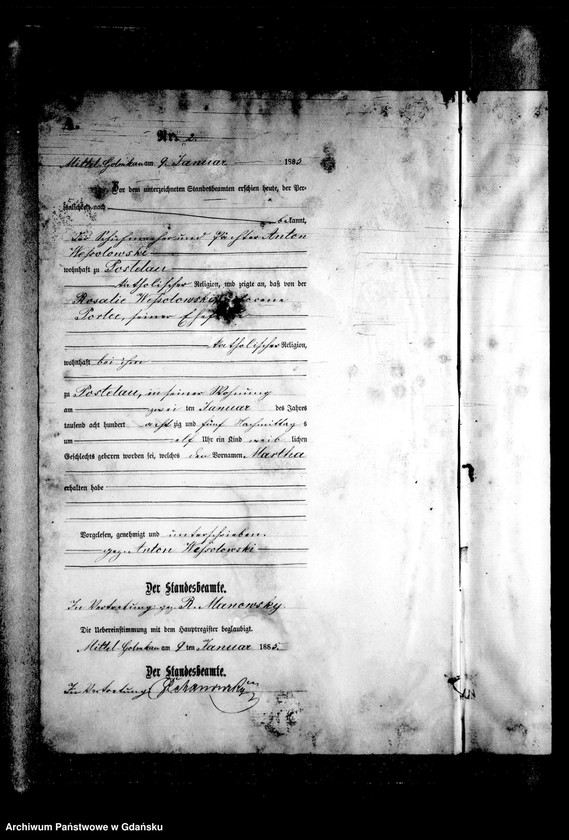 Nr. 2.
Mittel Golmkau am 9 Januar 1885
Vor dem unterzeichneten Standesbeamten erschien heute, der Per-
sönlichkeit nach
bekannt,
der und Pächter Anton
Wessolowski
wohnhaft zu Postelau
katholischer Religion, und zeigte an, daß von der
Rosalie Wessolowski, geborene
seiner Ehefrau
katholischer Religion,
wohnhaft bei ihm
zu Postelau, in seiner Wohnung
am zwei ten Januar des Jahres
tausend acht hundert acht zig und fünf Nachmittag s
um elf Uhr ein Kind weib lichen
Geschlechts geboren worden sei, welches den Vornamen Martha
erhalten habe
Vorgelesen, genehmigt und unterschrieben.
gez. Anton Wessolowski
Der Standesbeamte.
In Vertretung gez. R. Manowsky.
Die Uebereinstimmung mit dem Hauptregister beglaubigt.
Mittel Golmkau am 9 ten Januar 1885.
Der Standesbeamte.
In Vertretung:
Archiwum Państwowe w Gdańsku